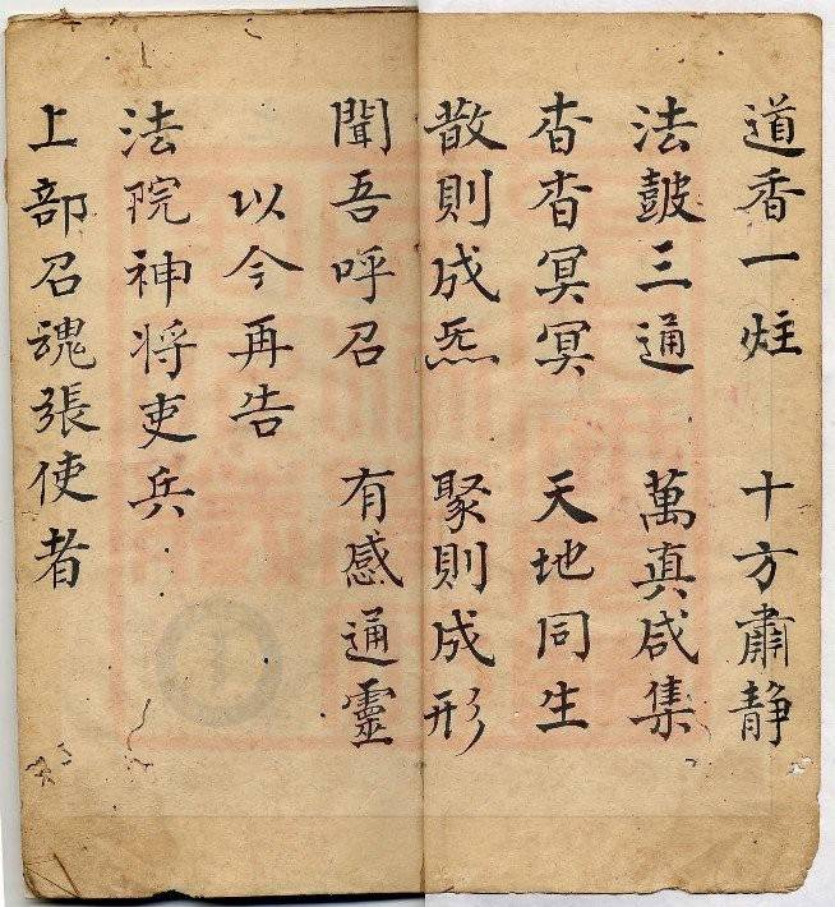 道香一炷　十方肅靜
法皷三通　萬真咸集
杳杳冥冥　天地同生
散則成炁　聚則成形
聞吾呼召　有感通靈
以今再告
法院神将吏兵
上部召魂張使者